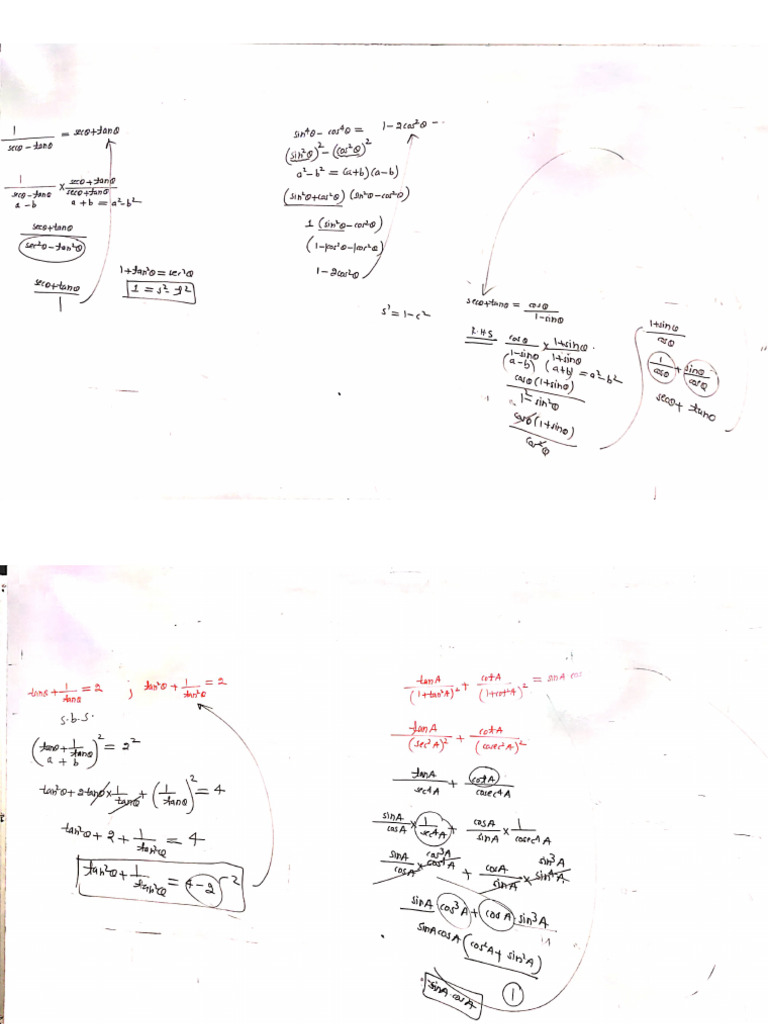 1/(secθ - tanθ) = secθ + tanθ
1/(secθ - tanθ) × (secθ + tanθ)/(secθ + tanθ)
a - b   a + b = a² - b²
(secθ + tanθ)/(sec²θ - tan²θ)
(secθ + tanθ)/1
1 + tan²θ = sec²θ
sin⁴θ - cos⁴θ = 1 - 2cos²θ
(sin²θ)² - (cos²θ)²
a² - b² = (a+b)(a-b)
(sin²θ + cos²θ)(sin²θ - cos²θ)
1(sin²θ - cos²θ)
(1 - cos²θ - cos²θ)
1 - 2cos²θ
secθ + tanθ = cosθ/(1 - sinθ)
R.H.S cosθ/(1 - sinθ) × (1 + sinθ)/(1 + sinθ)
(a-b) (a+b) = a² - b²
cosθ(1 + sinθ)/(1² - sin²θ)
cosθ(1 + sinθ)/cos²θ
(1 + sinθ)/cosθ
1/cosθ + sinθ/cosθ
secθ + tanθ
tanθ + 1/tanθ = 2 ; tan²θ + 1/tan²θ = 2
S.B.S.
(tanθ + 1/tanθ)² = 2²
a + b
tan²θ + 2tanθ × 1/tanθ + (1/tanθ)² = 4
tan²θ + 2 + 1/tan²θ = 4
tan²θ + 1/tan²θ = 4 - 2 2
tanA/(1 + tan²A)² + cotA/(1 + cot²A)² = sinA cos
tanA/(sec²A)² + cotA/(cosec²A)²
tanA/sec⁴A + cotA/cosec⁴A
sinA/cosA × 1/sec⁴A + cosA/sinA × 1/cosec⁴A
sinA/cosA × cos⁴A + cosA/sinA × sin⁴A
cos³A sin³A
sinA cos³A + cosA sin³A
sinA cosA (cos²A + sin²A)
sinA cosA 1